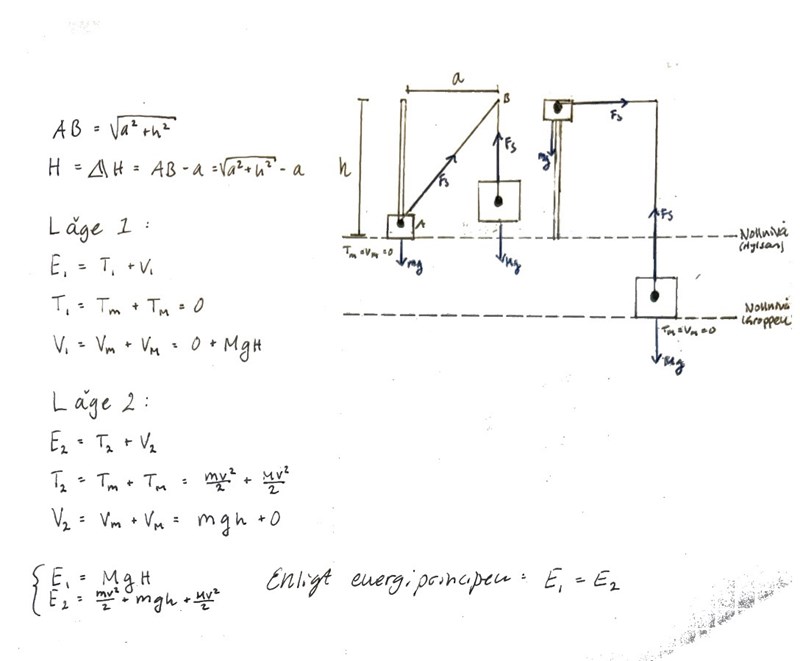 AB = √a²+h²
H = ΔH = AB - a = √a²+h² - a
Läge 1:
E₁ = T₁ + V₁
T₁ = Tm + TM = 0
V₁ = Vm + VM = 0 + MgH
Läge 2:
E₂ = T₂ + V₂
T₂ = Tm + TM = mv²/2 + Mv²/2
V₂ = Vm + VM = mgh + 0
E₁ = MgH
E₂ = mv²/2 + mgh + Mv²/2
Enligt energiprincipen: E₁ = E₂
a
B
h
Fs
Fs
A
Tm = Vm = 0
mg
Mg
Fs
mg
Fs
Nollnivå
(hylsan)
Nollnivå
(kroppen)
TM = VM = 0
Mg